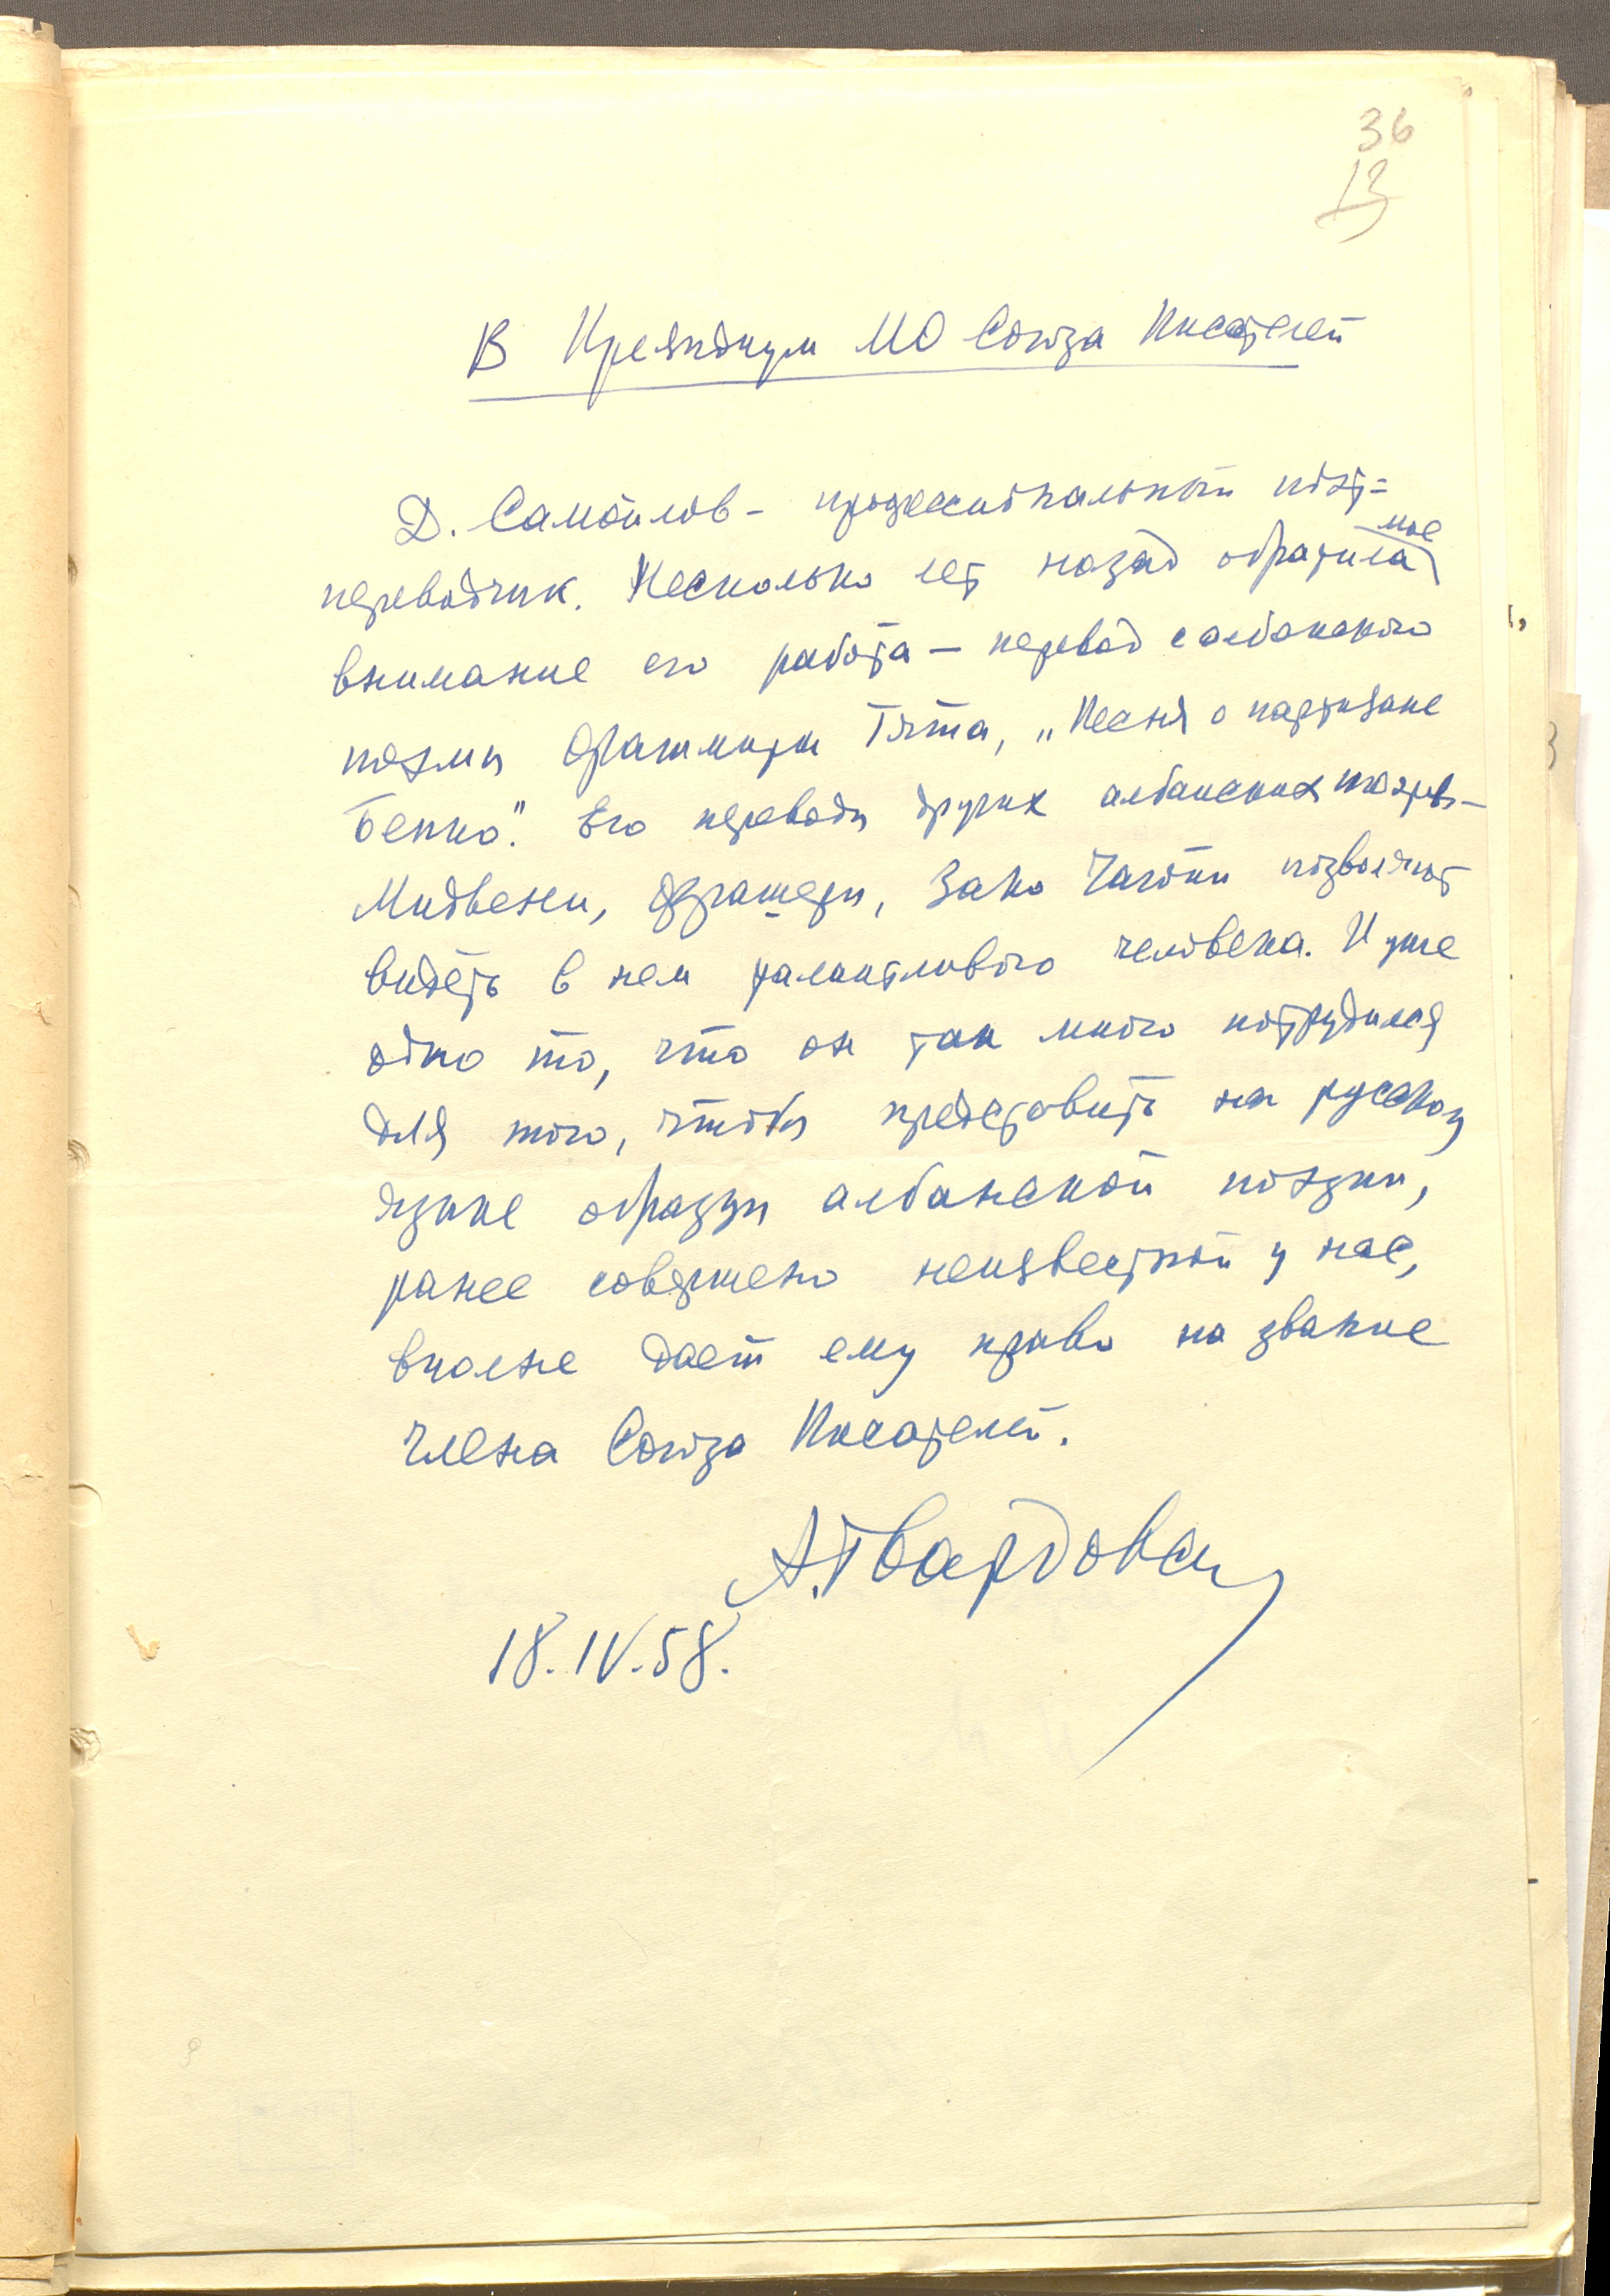 36
13
В Президиум МО Союза Писателей
Д. Самойлов – профессиональный поэт=
мое
переводчик. Несколько лет назад обратила
внимание его работа – перевод с албанского
поэмы Фатмира Гята, „Песня о партизане
Бенко". Его переводы других албанских поэтов –
Мидвени, Фрашери, Зако Чаюпи позволяют
видеть в нем талантливого человека. И уже
одно то, что он так много потрудился
для того, чтобы представить на русском
языке образцы албанской поэзии,
ранее совершено неизвестной у нас,
вполне дает ему право на звание
члена Союза Писателей.
А. Твардовский
18.IV.58.